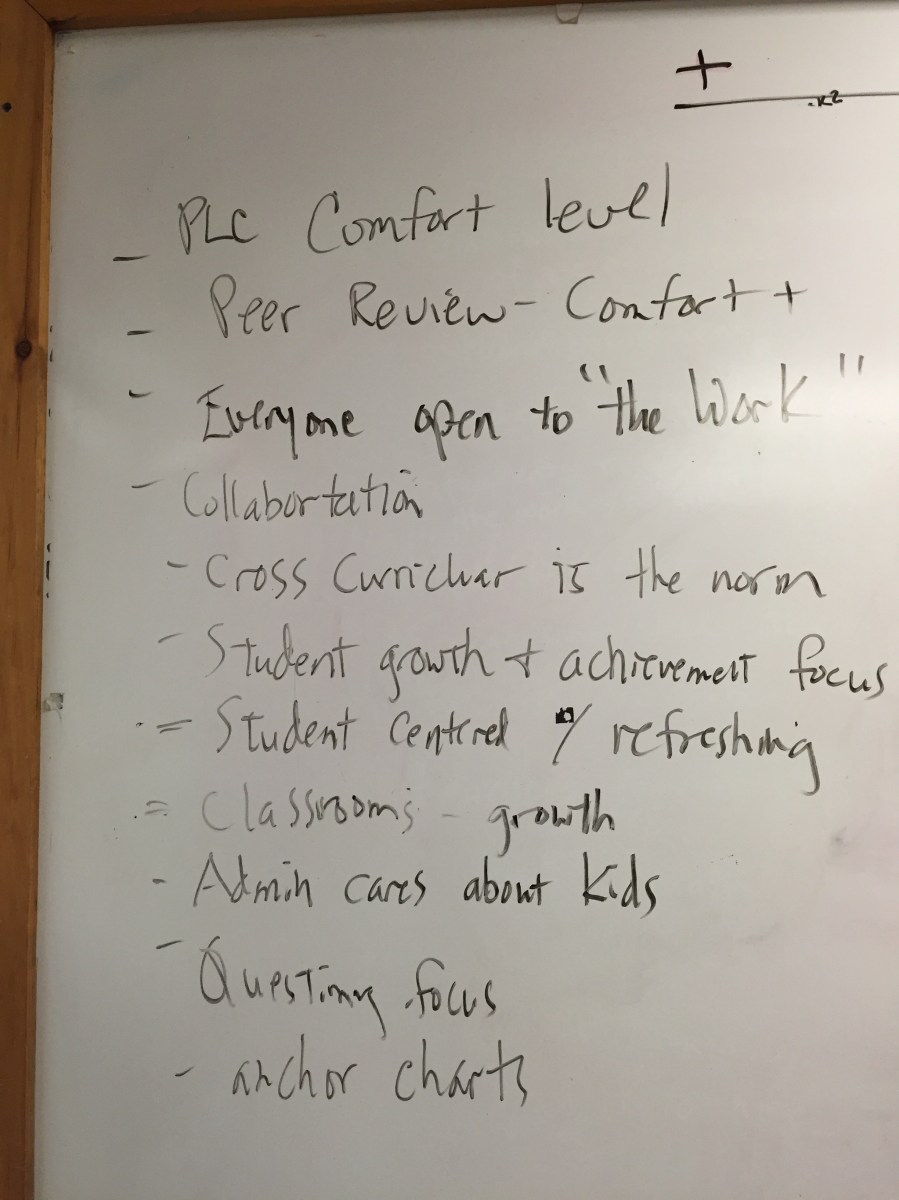 +
- PLC Comfort level
- Peer Review - Comfort +
- Everyone open to "the Work"
- Collabortation
- Cross Curricluar is the norm
- Student growth + achievement focus
= Student Centered / refreshing
= Classrooms - growth
- Admin cares about kids
- Questining focus
- anchor charts